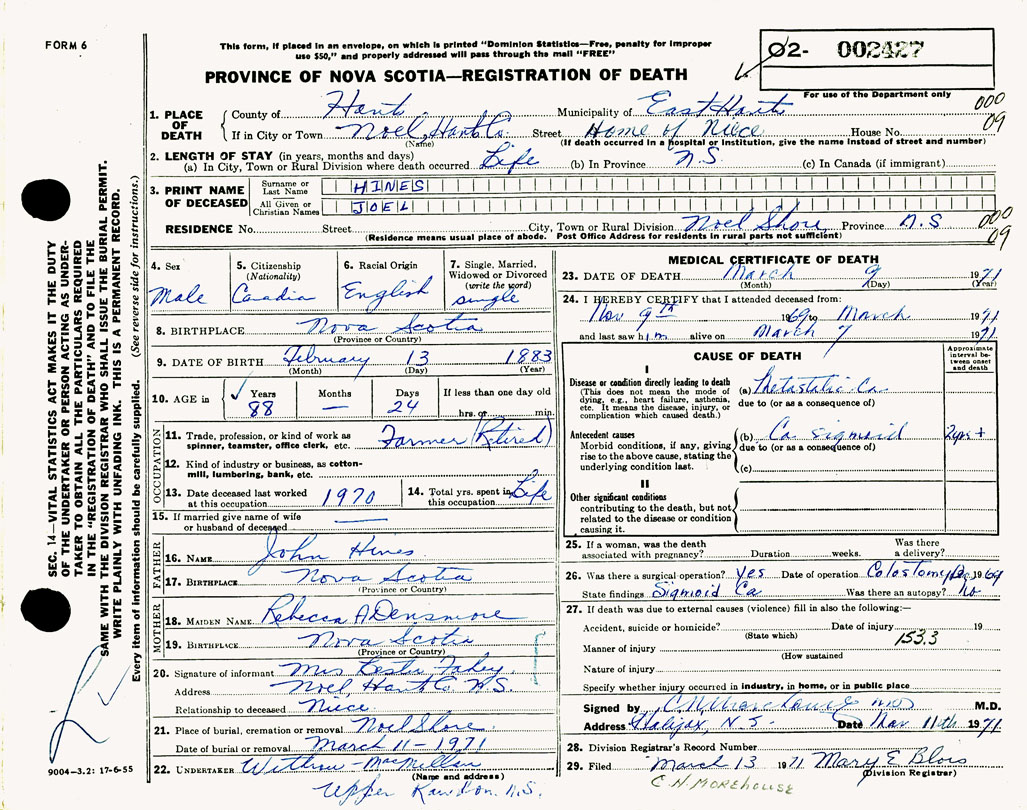 FORM 6
This form, if placed in an envelope, on which is printed "Dominion Statistics—Free, penalty for improper
use $50," and properly addressed will pass through the mail "FREE"
Ø2- 002427
PROVINCE OF NOVA SCOTIA—REGISTRATION OF DEATH
For use of the Department only
000
09
1. PLACE OF DEATH
County of Hants Municipality of East Hants
If in City or Town Noel, Hants Co. Street Home of Niece House No.
(Name) (If death occurred in a hospital or institution, give the name instead of street and number)
2. LENGTH OF STAY (in years, months and days)
(a) In City, Town or Rural Division where death occurred Life (b) In Province N.S. (c) In Canada (if immigrant)
3. PRINT NAME OF DECEASED
Surname or Last Name HINES
All Given or Christian Names JOEL
RESIDENCE No. Street City, Town or Rural Division Noel Shore Province N.S
(Residence means usual place of abode. Post Office Address for residents in rural parts not sufficient)
000
09
4. Sex
Male
5. Citizenship
(Nationality)
Canadia
6. Racial Origin
English
7. Single, Married, Widowed or Divorced
(write the word)
single
8. BIRTHPLACE Nova Scotia
(Province or Country)
9. DATE OF BIRTH February 13 1883
(Month) (Day) (Year)
10. AGE in
Years Months Days If less than one day old
88 — 24 hrs. or min.
OCCUPATION
11. Trade, profession, or kind of work as
spinner, teamster, office clerk, etc. Farmer (Retired)
12. Kind of industry or business, as cotton-
mill, lumbering, bank, etc.
13. Date deceased last worked
at this occupation 1970
14. Total yrs. spent in
this occupation Life
15. If married give name of wife
or husband of deceased —
FATHER
16. NAME John Hines
17. BIRTHPLACE Nova Scotia
(Province or Country)
MOTHER
18. MAIDEN NAME Rebecca A Densmore
19. BIRTHPLACE Nova Scotia
(Province or Country)
20. Signature of informant Mrs Lester Fahey
Address Noel Hants Co N.S.
Relationship to deceased Niece
21. Place of burial, cremation or removal Noel Shore
Date of burial or removal March 11 - 1971
22. UNDERTAKER Withrow - MacMillan
(Name and address)
Upper Rawdon N.S.
MEDICAL CERTIFICATE OF DEATH
23. DATE OF DEATH March 9 1971
(Month) (Day) (Year)
24. I HEREBY CERTIFY that I attended deceased from:
Nov 9th 1969 to March 1971
and last saw him alive on March 7 1971
CAUSE OF DEATH
Approximate interval between onset and death
I
Disease or condition directly leading to death
(This does not mean the mode of
dying, e.g., heart failure, asthenia,
etc. It means the disease, injury, or
complication which caused death.)
(a) Metastatic Ca
due to (or as a consequence of)
Antecedent causes
Morbid conditions, if any, giving
rise to the above cause, stating the
underlying condition last.
(b) Ca sigmoid 2yrs +
due to (or as a consequence of)
(c)
II
Other significant conditions
contributing to the death, but not
related to the disease or condition
causing it.
25. If a woman, was the death
associated with pregnancy? Duration weeks. Was there a delivery?
26. Was there a surgical operation? Yes Date of operation Colostomy Dec 1969
State findings Sigmoid Ca Was there an autopsy? No
27. If death was due to external causes (violence) fill in also the following:—
Accident, suicide or homicide? Date of injury 19
(State which) 153.3
Manner of injury
(How sustained
Nature of injury
Specify whether injury occurred in industry, in home, or in public place
Signed by M.D.
Address Halifax, N.S. Date Mar 11th 1971
28. Division Registrar's Record Number
29. Filed March 13 1971 Mary E Blois
(Division Registrar)
C.H. MOREHOUSE
SEC. 14—VITAL STATISTICS ACT MAKES IT THE DUTY
OF THE UNDERTAKER OR PERSON ACTING AS UNDER-
TAKER TO OBTAIN ALL THE PARTICULARS REQUIRED
IN THE "REGISTRATION OF DEATH" AND TO FILE THE
SAME WITH THE DIVISION REGISTRAR WHO SHALL ISSUE THE BURIAL PERMIT.
WRITE PLAINLY WITH UNFADING INK. THIS IS A PERMANENT RECORD.
Every item of information should be carefully supplied. (See reverse side for instructions.)
9004-3.2: 17-6-55